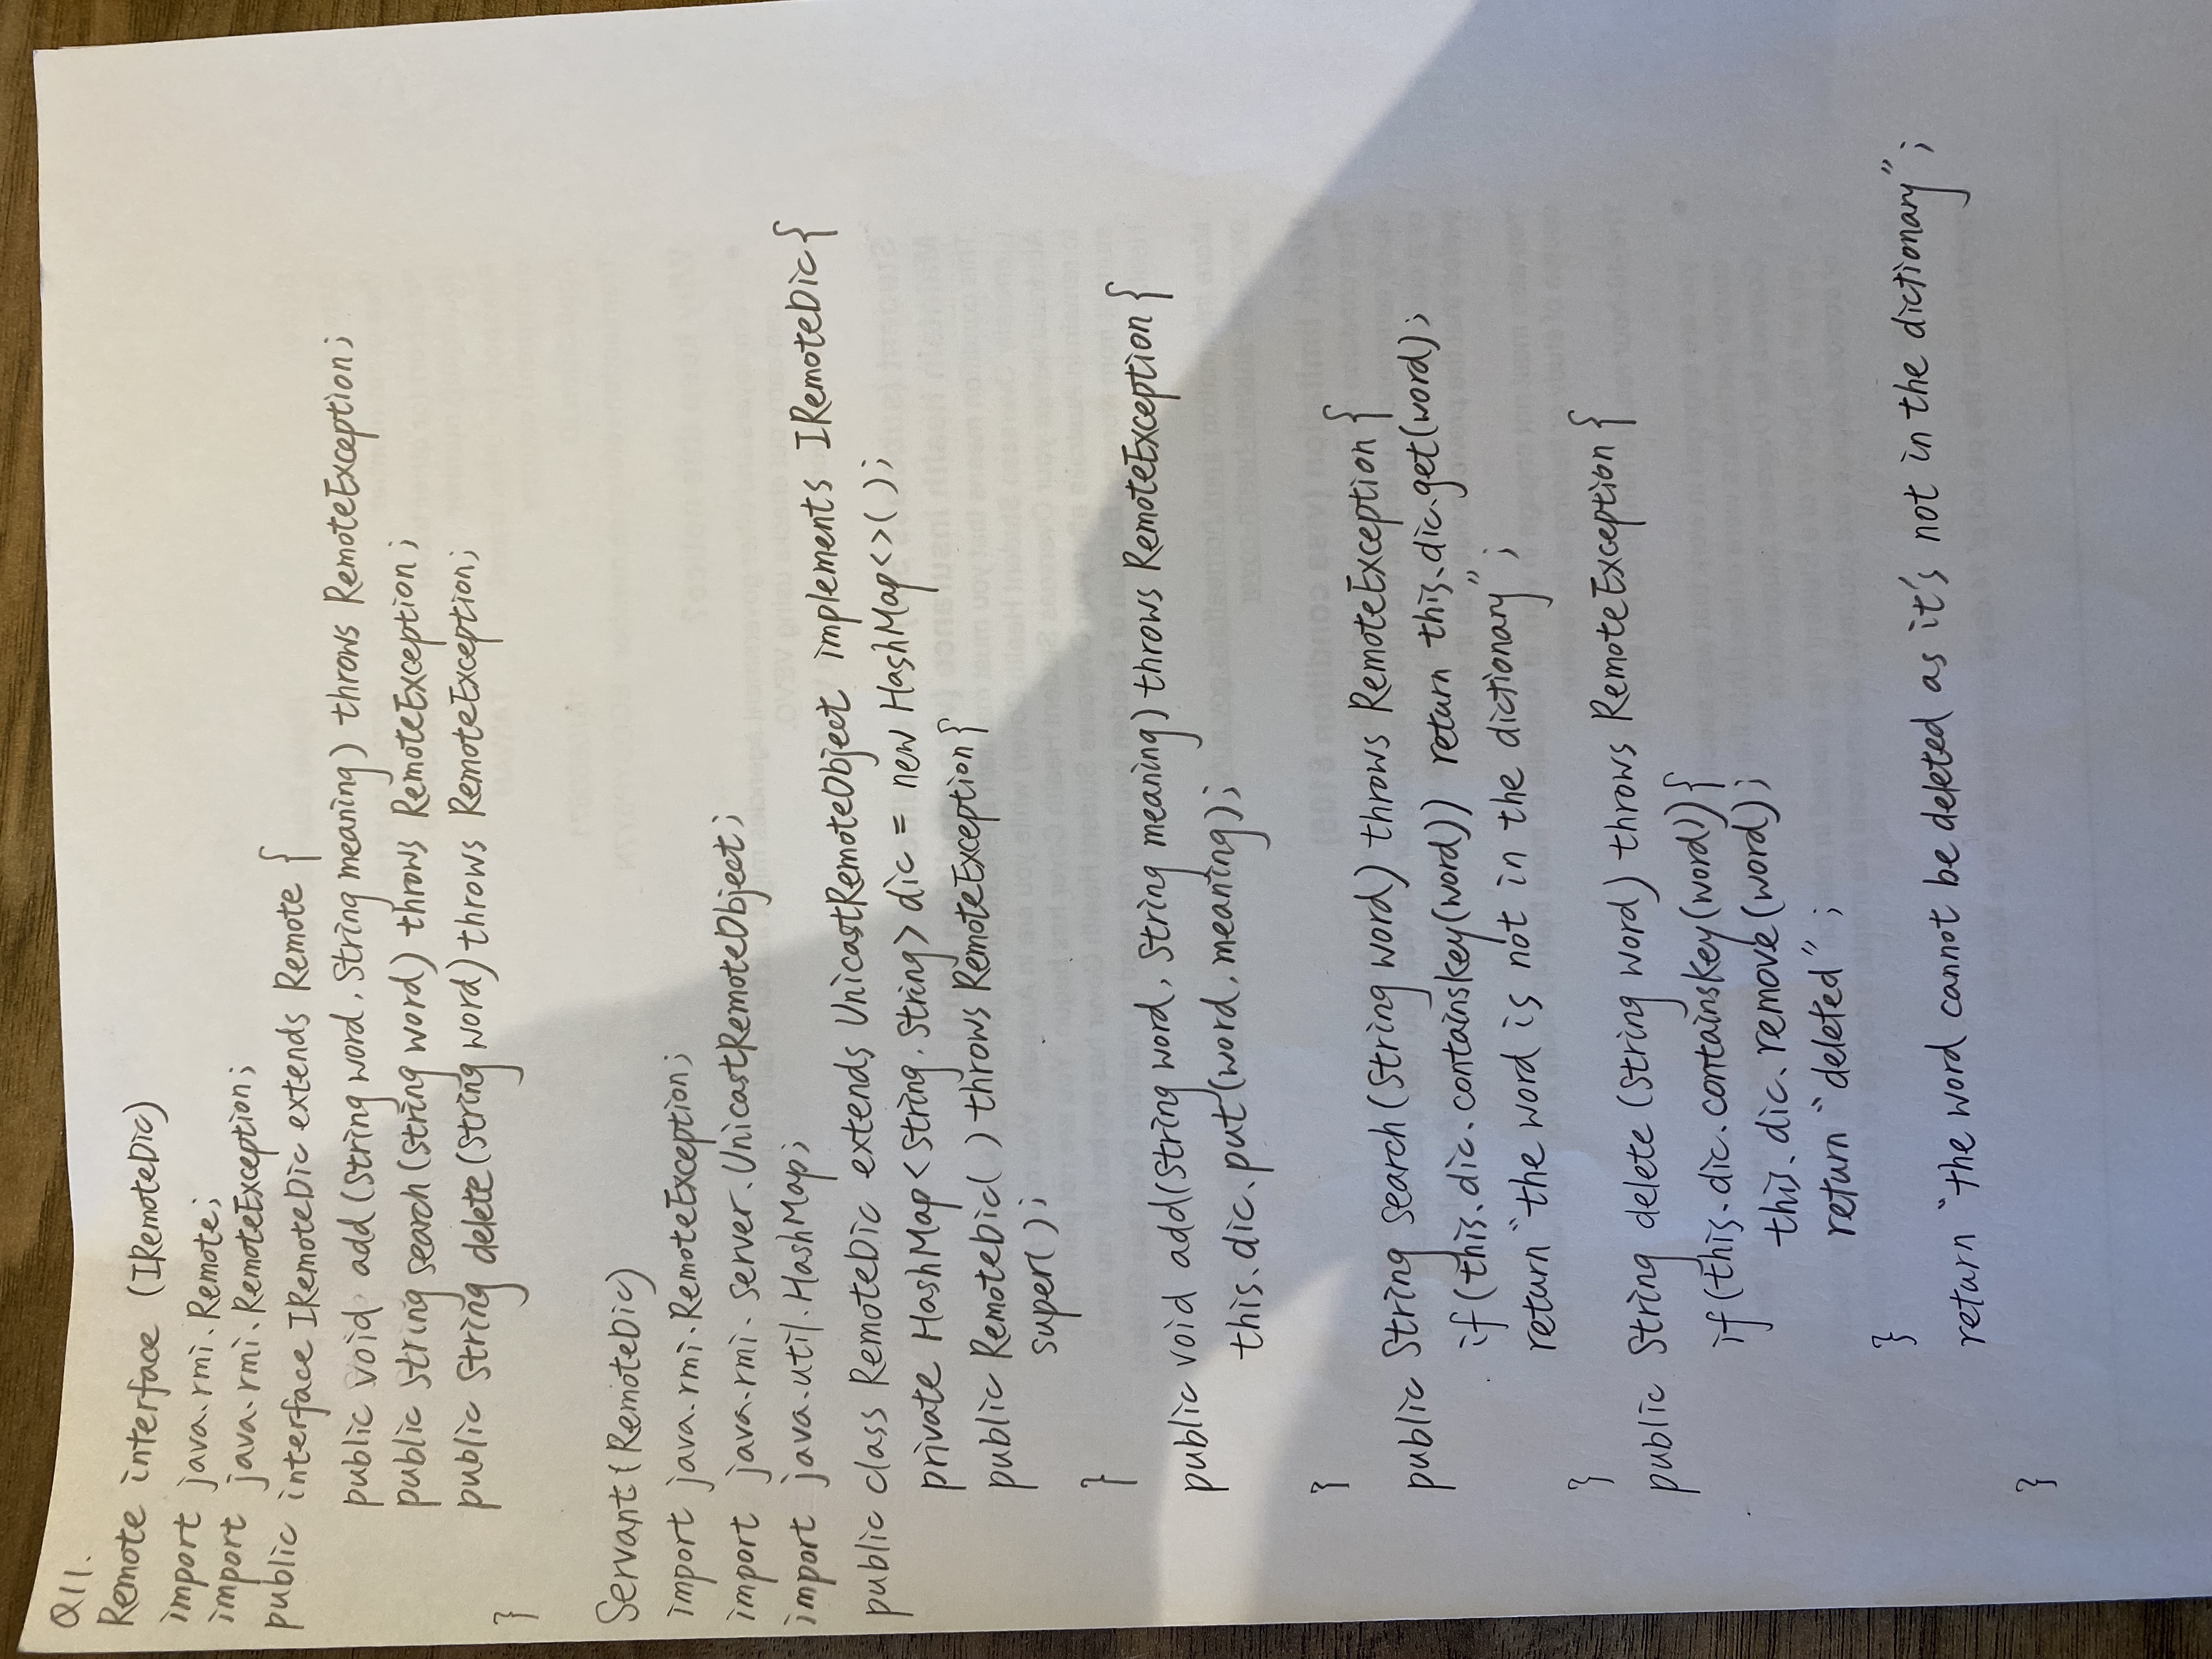 Q11.
Remote interface (IRemoteDic)
import java.rmi.Remote;
import java.rmi.RemoteException;
public interface IRemoteDic extends Remote {
public void add (String word, String meaning) throws RemoteException;
public String search (String word) throws RemoteException;
public String delete (String word) throws RemoteException;
}
Servant (RemoteDic)
import java.rmi.RemoteException;
import java.rmi.server.UnicastRemoteObject;
import java.util.HashMap;
public class RemoteDic extends UnicastRemoteObject implements IRemoteDic {
private HashMap<String, String> dic = new HashMap<>();
public RemoteDic( ) throws RemoteException {
super( );
}
public void add(String word, String meaning) throws RemoteException {
this.dic.put(word, meaning);
}
public String search (String word) throws RemoteException {
if (this.dic.containsKey(word)) return this.dic.get(word);
return "the word is not in the dictionary";
}
public String delete (String word) throws RemoteException {
if (this.dic.containsKey(word)) {
this.dic.remove(word);
return "deleted";
}
return "the word cannot be deleted as it's not in the dictionary";
}